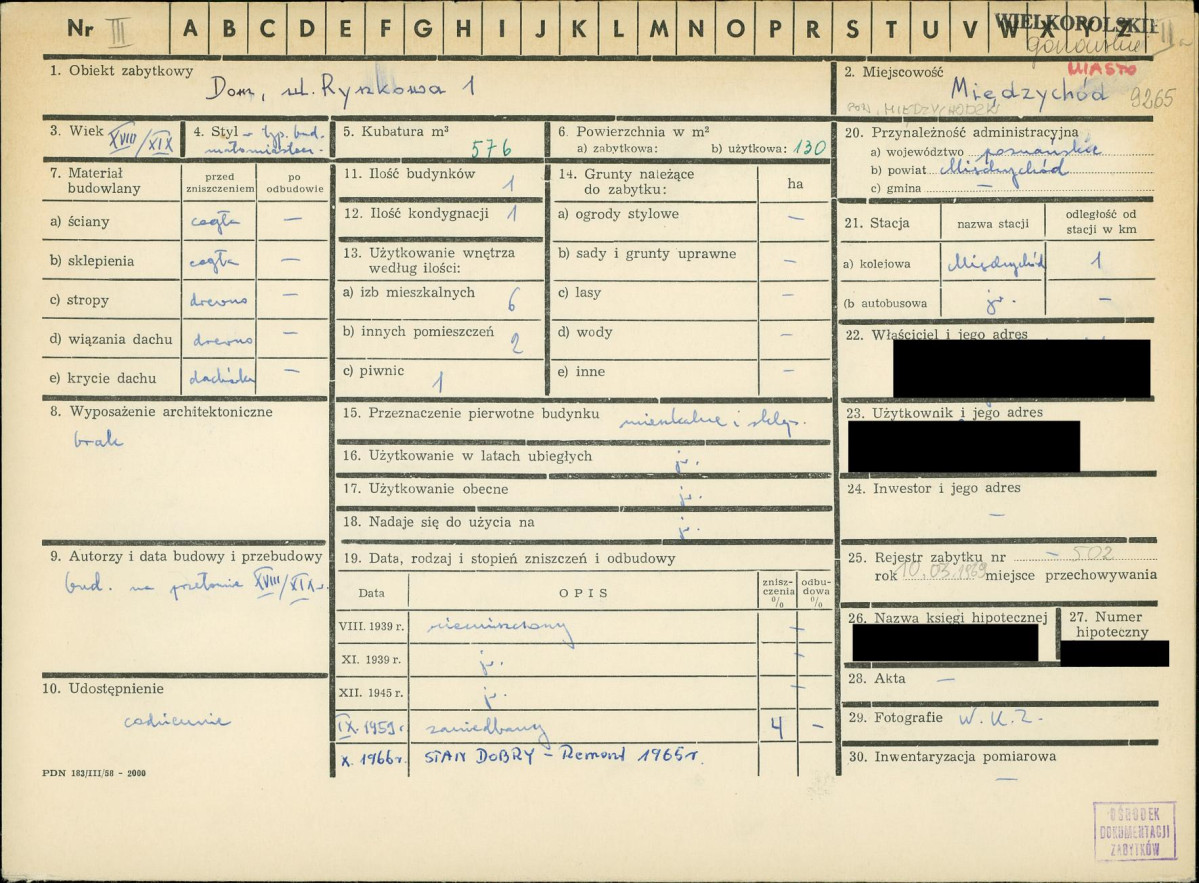 Nr III A B C D E F G H I J K L M N O P R S T U V W X Y Z
WIELKOPOLSKIE
MIASTO
1. Obiekt zabytkowy
Dom, ul. Ryszkowa 1
2. Miejscowość
Międzychód 9265
POW. MIĘDZYCHODZKI
3. Wiek XVIII/XIX
4. Styl - typ. bud.
małomiastecz.
5. Kubatura m³
576
6. Powierzchnia w m²
a) zabytkowa: b) użytkowa: 130
7. Materiał budowlany
przed zniszczeniem
po odbudowie
a) ściany cegła —
b) sklepienia cegła —
c) stropy drewno —
d) wiązania dachu drewno —
e) krycie dachu dachówka —
8. Wyposażenie architektoniczne
brak
9. Autorzy i data budowy i przebudowy
bud. na przełomie XVIII/XIX w.
10. Udostępnienie
codziennie
PDN 183/III/58 - 2000
11. Ilość budynków 1
12. Ilość kondygnacji 1
13. Użytkowanie wnętrza
według ilości:
a) izb mieszkalnych 6
b) innych pomieszczeń 2
c) piwnic 1
14. Grunty należące
do zabytku:
ha
a) ogrody stylowe —
b) sady i grunty uprawne —
c) lasy —
d) wody —
e) inne —
15. Przeznaczenie pierwotne budynku mieszkalne i sklep.
16. Użytkowanie w latach ubiegłych j.
17. Użytkowanie obecne j.
18. Nadaje się do użycia na j.
19. Data, rodzaj i stopień zniszczeń i odbudowy
Data
OPIS
znisz-
czenia
%
odbu-
dowa
%
VIII. 1939 r. niezniszczony —
XI. 1939 r. j. —
XII. 1945 r. j. —
IX. 1959 r. zaniedbany 4 —
X. 1966 r. STAN DOBRY - Remont 1965 r.
20. Przynależność administracyjna
a) województwo poznańskie
b) powiat Międzychód
c) gmina —
21. Stacja
nazwa stacji
odległość od
stacji w km
a) kolejowa Międzychód 1
(b autobusowa j. —
22. Właściciel i jego adres
23. Użytkownik i jego adres
24. Inwestor i jego adres
—
25. Rejestr zabytku nr — 502
rok 10.03.1969 miejsce przechowywania
26. Nazwa księgi hipotecznej
27. Numer
hipoteczny
28. Akta —
29. Fotografie W.K.Z.
30. Inwentaryzacja pomiarowa
—
OŚRODEK
DOKUMENTACJI
ZABYTKÓW